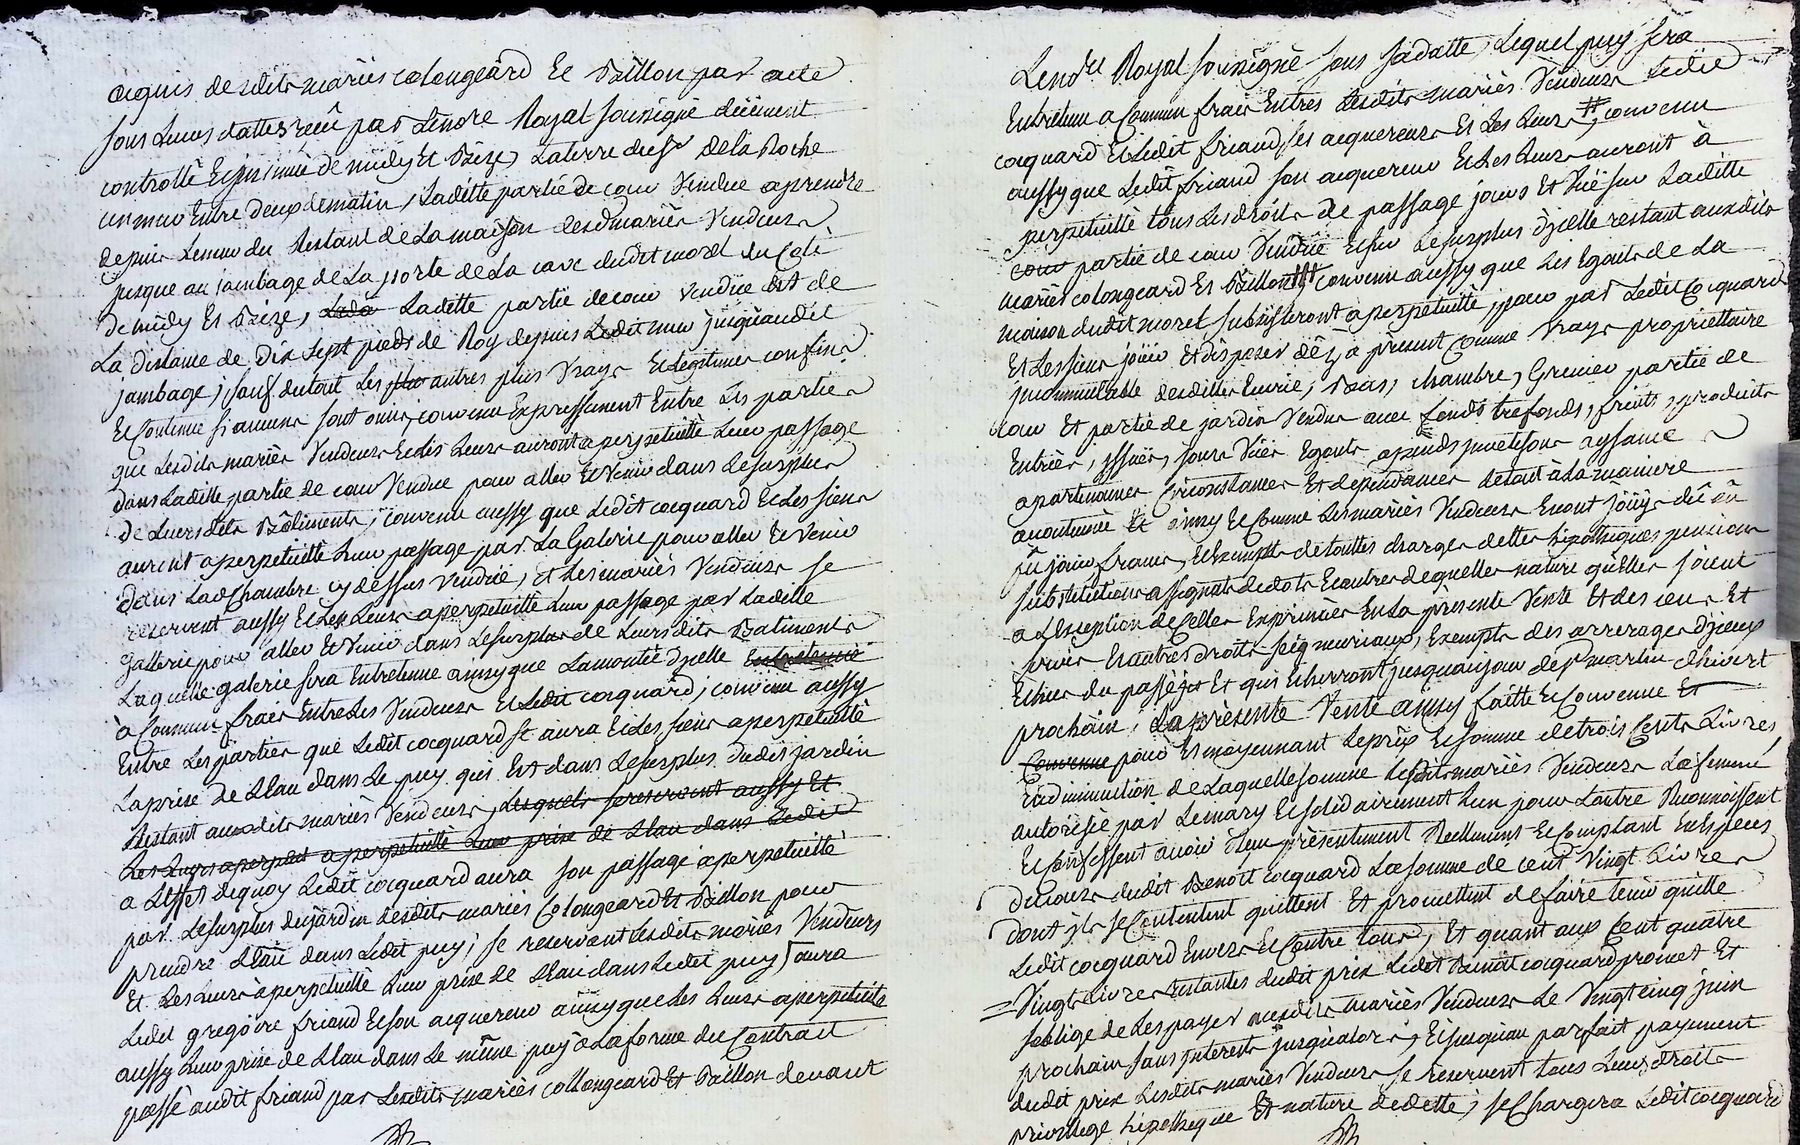 acquis desdits mariés colongeard Et Baillon par acte
sous Leurs dattes reçû par Le nore Royal soussigné düement
controllé Et insinué de midy Et Bize, La terre du sr De la Roche
un mur Entre deux de matin, Laditte partie de cour Vendue a prendre
depuis Le mur du Restant de La maison desd mariés Vendeurs
jusque au jambage de La porte de La cave dudit morel du Coté
de midy Et Bize, Laditte partie de cour vendüe est de
La distance de dix sept pieds de Roy depuis Ledit mur jusqu'audit
jambage, sauf du tout Les autres plus Vrays Et Legitimes confins
Et Contenus si aucuns sont omis, convenu Expressement Entre Les parties
que Lesdits mariés Vendeurs Et Les Leurs auront a perpetuitté Leur passage
dans Laditte partie de cour Vendue pour aller Et Venir dans Le surplus
de Leursdits Bâtiments, convenu aussy que Ledit cocquard Et Les siens
auront a perpetuitté Leur passage par La Galerie pour aller Et Venir
dans Lad Chambre cy dessus vendüe, et Les mariés Vendeurs se
reservent aussy Et Les Leurs a perpetuitté Leur passage par Laditte
Gallerie pour aller Et Venir dans Le surplus de Leursdits Batiments
Laquelle galerie sera Entretenue ainsy que La montée d'jcelle Entretenue
à Commun frais Entre Les Vendeurs Et Ledit cocquard, convenu aussy
Entre Les parties que Ledit cocquard aura Et Les siens a perpetuitté
La prise de L'eau dans Le puy qui Est dans Le surplus dudit jardin
Restant auxdits mariés Vendeurs, Lesquels se reservent aussy Et
Les Leurs a perpetuitté Leur prise de L'eau dans Ledit
a L'effet de quoy Ledit cocquard aura son passage a perpetuitté
par Le surplus du jardin desdits mariés Colongeard Et Baillon pour
prendre L'eau dans Ledit puy, se reservant Lesdits mariés Vendeurs
Et Les Leurs à perpetuitté Leur prise de L'eau dans Ledit puy, aura
Ledit gregoire friand Et son acquereur ainsy que Les Leurs a perpetuitté
aussy Leur prise de L'eau dans Le même puy à La forme du Contrait
passé audit friand par Lesdits mariés collongeard Et Baillon devant
Le nore Royal soussigné sous sa datte, Lequel puy sera
Entretenu a Commun frais Entres Lesdits mariés Vendeurs Ledit
cocquard Et Ledit friand, ses acquereurs Et Les Leurs # convenu
aussy que Ledit friand son acquereur Et Les Leurs auront à
perpetuitté tous Les droits de passage jours Et Vüe sur Laditte
partie de cour Vendüe Et sur Le surplus d'jcelle restant auxdits
mariés colongeard Et Baillon convenu aussy que Les Egouts de La
maison dudit morel subsisteront a perpetuitté pour par Ledit Cocquard
Et Les siens joüir Et disposer dêz a present Comme Vrays proprietaire
jncommutable desdittes Ecurie, Bas, chambre, Grenier partie de
cour Et partie de jardin Vendus avec fonds trefonds, fruits, produits
Entrées, jssuës, jours Vües Egouts, aysance
apartenances Circonstances Et dependances de tout à La maniere
acoutumée Et ainsy Et Comme Les mariés Vendeurs En ont joüÿs dû ou
pû joüir francs, Et Exempts de touttes charges dettes hipothèques pensions
substitutions assignats de dots Et autres de quelles nature qu'elles soient
a L'exception de Celles Exprimées En La présente Vente Et des cens Et
servis Et autres droits seigneuriaux, Exempts des arrerages d'jceux
Echus du passéJusq Et qui Echerront jusqu'au jour de st martin d'hivert
prochain. La présente Vente ainsy faitte Et Convenue Et
Convenue pour Et moyennant Le prix Et somme de trois Cents Livres
En diminution de Laquelle somme Lesdits mariés Vendeurs La femme
autorisée par Le mary Et solidairement L'un pour L'autre Reconnoissent
Et Confessent avoir Eu présentement Reellement Et Comptant En Especes
de cours dudit Benoit Cocquard La somme de cent Vingt Livres
Dont jls se Contentent quittent Et promettent de faire tenir quitte
Ledit cocquard Envers Et Contre tous, Et quant aux Cent quatre
Vingt Livres restantes dudit prix Ledit Benoit cocquard promet Et
s'oblige de Les payer auxdits mariés Vendeurs Le Vingt cinq juin
prochain sans jnterets jusqu'alors, Et jusqu'au parfait payement
dudit prix Lesdits mariés Vendeurs se reservent tous Leurs droits
privilege hipotheque Et nature de dette, se Chargera Ledit cocquard